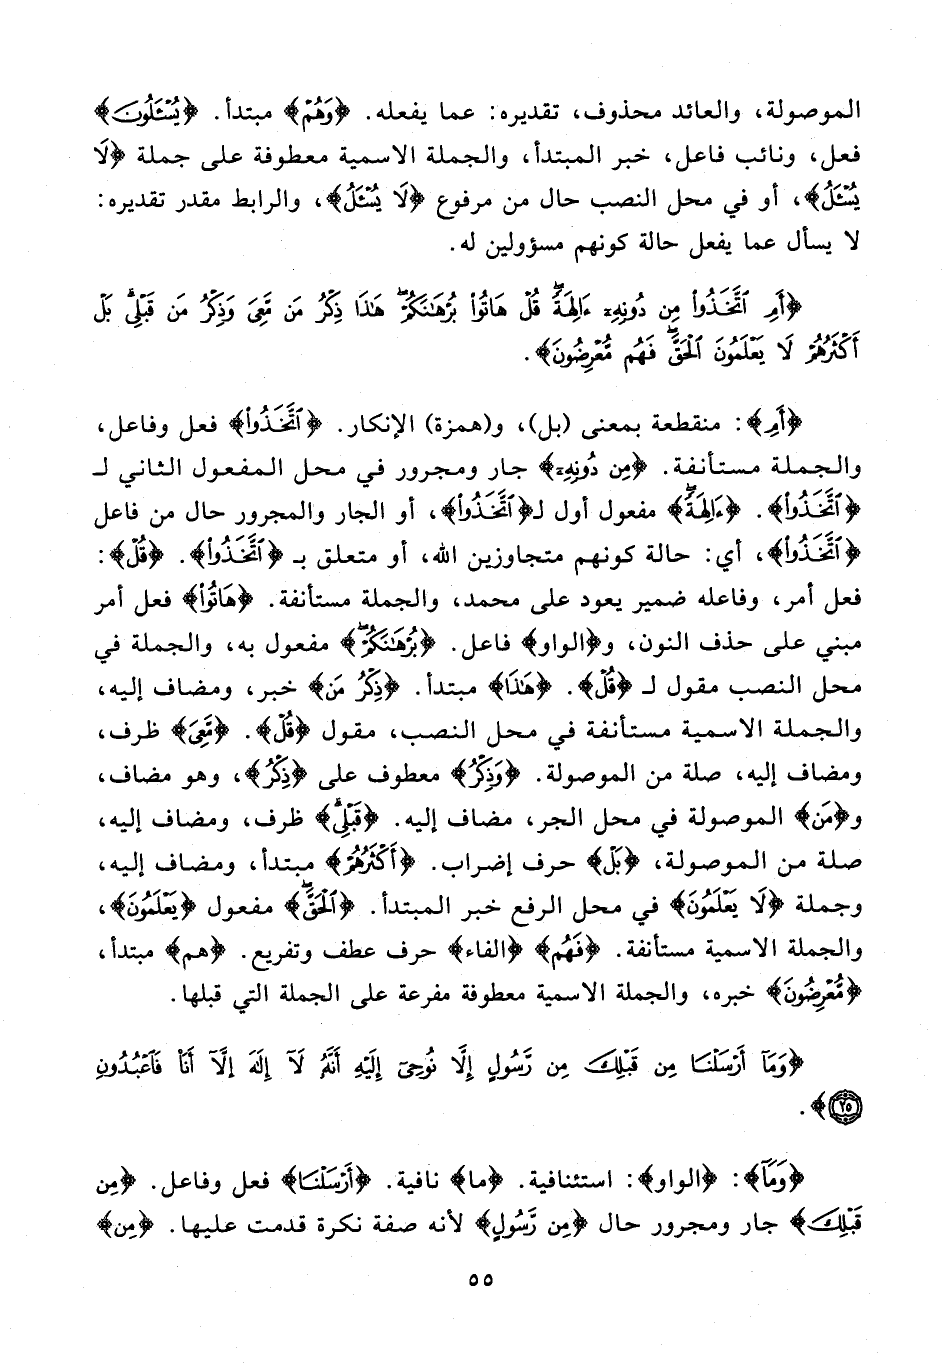 الموصولة، والعائد محذوف، تقديره: عما يفعله. ﴿وَهُمْ﴾ مبتدأ. ﴿يُسْـَٔلُونَ﴾
فعل، ونائب فاعل، خبر المبتدأ، والجملة الاسمية معطوفة على جملة ﴿لَا
يُسْـَٔلُ﴾، أو في محل النصب حال من مرفوع ﴿لَا يُسْـَٔلُ﴾، والرابط مقدر تقديره:
لا يسأل عما يفعل حالة كونهم مسؤولين له.
﴿أَمِ ٱتَّخَذُوا۟ مِن دُونِهِۦٓ ءَالِهَةًۖ قُلْ هَاتُوا۟ بُرْهَـٰنَكُمْۖ هَـٰذَا ذِكْرُ مَن مَّعِىَ وَذِكْرُ مَن قَبْلِىۗ بَلْ
أَكْثَرُهُمْ لَا يَعْلَمُونَ ٱلْحَقَّۖ فَهُم مُّعْرِضُونَ﴾.
﴿أَمِ﴾: منقطعة بمعنى (بل)، و(همزة) الإنكار. ﴿ٱتَّخَذُوا۟﴾ فعل وفاعل،
والجملة مستأنفة. ﴿مِن دُونِهِۦٓ﴾ جار ومجرور في محل المفعول الثاني لـ
﴿ٱتَّخَذُوا۟﴾. ﴿ءَالِهَةًۖ﴾ مفعول أول لـ﴿ٱتَّخَذُوا۟﴾، أو الجار والمجرور حال من فاعل
﴿ٱتَّخَذُوا۟﴾، أي: حالة كونهم متجاوزين الله، أو متعلق بـ ﴿ٱتَّخَذُوا۟﴾. ﴿قُلْ﴾:
فعل أمر، وفاعله ضمير يعود على محمد، والجملة مستأنفة. ﴿هَاتُوا۟﴾ فعل أمر
مبني على حذف النون، و﴿الواو﴾ فاعل. ﴿بُرْهَـٰنَكُمْۖ﴾ مفعول به، والجملة في
محل النصب مقول لـ ﴿قُلْ﴾. ﴿هَـٰذَا﴾ مبتدأ. ﴿ذِكْرُ مَن﴾ خبر، ومضاف إليه،
والجملة الاسمية مستأنفة في محل النصب، مقول ﴿قُلْ﴾. ﴿مَّعِىَ﴾ ظرف،
ومضاف إليه، صلة من الموصولة. ﴿وَذِكْرُ﴾ معطوف على ﴿ذِكْرُ﴾، وهو مضاف،
و﴿مَن﴾ الموصولة في محل الجر، مضاف إليه. ﴿قَبْلِىۗ﴾ ظرف، ومضاف إليه،
صلة من الموصولة، ﴿بَلْ﴾ حرف إضراب. ﴿أَكْثَرُهُمْ﴾ مبتدأ، ومضاف إليه،
وجملة ﴿لَا يَعْلَمُونَ﴾ في محل الرفع خبر المبتدأ. ﴿ٱلْحَقَّۖ﴾ مفعول ﴿يَعْلَمُونَ﴾،
والجملة الاسمية مستأنفة. ﴿فَهُم﴾ ﴿الفاء﴾ حرف عطف وتفريع. ﴿هم﴾ مبتدأ،
﴿مُّعْرِضُونَ﴾ خبره، والجملة الاسمية معطوفة مفرعة على الجملة التي قبلها.
﴿وَمَآ أَرْسَلْنَا مِن قَبْلِكَ مِن رَّسُولٍ إِلَّا نُوحِىٓ إِلَيْهِ أَنَّهُۥ لَآ إِلَـٰهَ إِلَّآ أَنَا۠ فَٱعْبُدُونِ
٢٥﴾.
﴿وَمَآ﴾: ﴿الواو﴾: استئنافية. ﴿ما﴾ نافية. ﴿أَرْسَلْنَا﴾ فعل وفاعل. ﴿مِن
قَبْلِكَ﴾ جار ومجرور حال ﴿مِن رَّسُولٍ﴾ لأنه صفة نكرة قدمت عليها. ﴿مِن﴾
٥٥